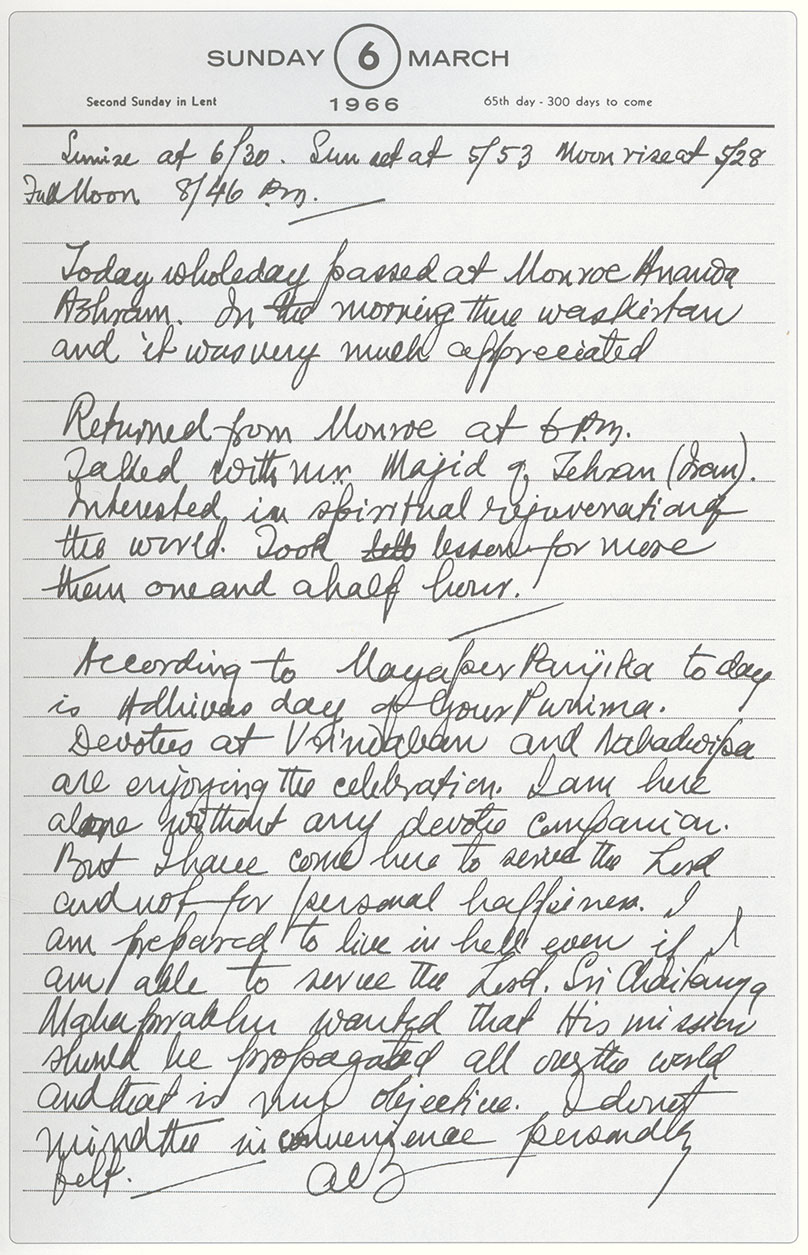 SUNDAY 6 MARCH
1966
Second Sunday in Lent
65th day - 300 days to come
Sunrise at 6/30. Sun set at 5/53 Moon rise at 5/28
Full Moon 8/46 P.m.
Today wholeday passed at Monroe Ananda
Ashram. In the morning there was kirtan
and it was very much appreciated
Returned from Monroe at 6 P.m.
Talked with mr. Majid of Tehran (Iran).
Interested in spiritual rejuvenation of
the world. Took lesson for more
than one and a half hour.
According to Mayapur Panjika today
is Adhivas day of Gour Purnima.
Devotees at Vrindaban and Nabadwipa
are enjoying the celebration. I am here
alone without any devotee companion.
But I have come here to serve the Lord
and not for personal happiness. I
am prepared to live in hell even if I
am able to serve the Lord. Sri Chaitanya
Mahaprabhu wanted that His mission
should be propagated all over the world
and that is my objective. I do not
mind the inconvenience personally
felt.